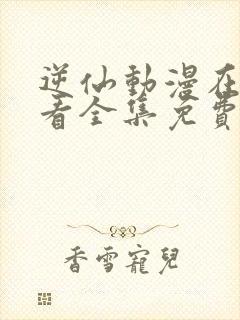 逆仙動漫在
看全集免費
香雪寵兒